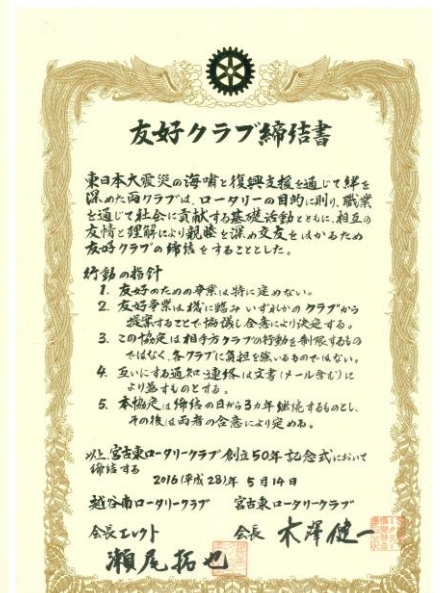 友好クラブ締結書
東日本大震災の海嘯と復興支援を通じて絆を
深めた両クラブは、ロータリーの目的に則り、職業
を通じて社会に貢献する基礎活動とともに、相互の
友情と理解により親睦を深め交友をはかるため
友好クラブの締結をすることとした。
行動の指針
1. 友好のための事業は特に定めない。
2. 友好事業は機に臨み いずれかのクラブから
提案することで協議し合意により決定する。
3. この協定は相手方クラブの行動を制限するもの
ではなく、各クラブに負担を強いるものではない。
4. 互いにする通知・連絡は文書(メール含む)に
より為すものとする。
5. 本協定は締結の日から3カ年継続するものとし、
その後は両者の合意により定める。
以上、宮古東ロータリークラブ創立50年記念式において
締結する
2016(平成28)年 5月14日
越谷南ロータリークラブ 宮古東ロータリークラブ
会長エレクト 会長 木澤健一
瀬尾拓也